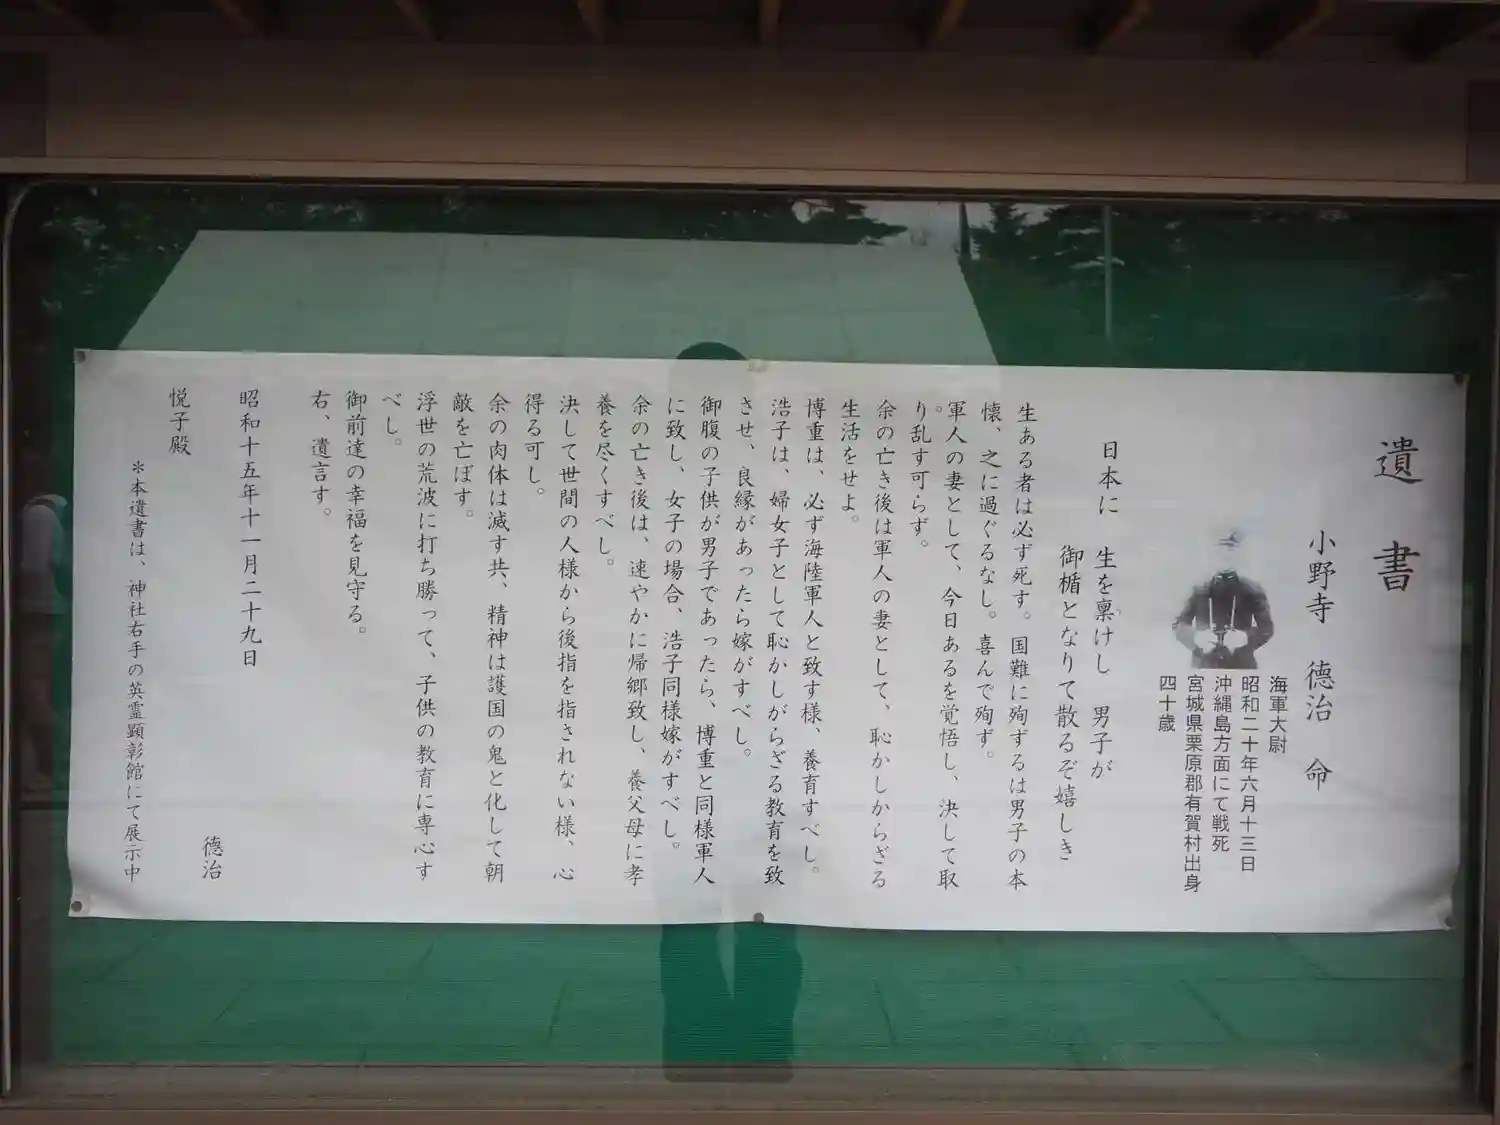 遺書
小野寺 德治 命
海軍大尉
昭和二十年六月十三日
沖縄島方面にて戦死
宮城県栗原郡有賀村出身
四十歳
日本に 生を稟けし 男子が
御楯となりて散るぞ嬉しき
生ある者は必ず死す。国難に殉ずるは男子の本
懐、之に過ぐるなし。喜んで殉ず。
軍人の妻として、今日あるを覚悟し、決して取
り乱す可らず。
余の亡き後は軍人の妻として、恥かしからざる
生活をせよ。
博重は、必ず海陸軍人と致す様、養育すべし。
浩子は、婦女子として恥かしがらざる教育を致
させ、良縁があったら嫁がすべし。
御腹の子供が男子であったら、博重と同様軍人
に致し、女子の場合、浩子同様嫁がすべし。
余の亡き後は、速やかに帰郷致し、養父母に孝
養を尽くすべし。
決して世間の人様から後指を指されない様、心
得る可し。
余の肉体は滅す共、精神は護国の鬼と化して朝
敵を亡ぼす。
浮世の荒波に打ち勝って、子供の教育に専心す
べし。
御前達の幸福を見守る。
右、遺言す。
昭和十五年十一月二十九日
德治
悦子殿
＊本遺書は、神社右手の英霊顕彰館にて展示中